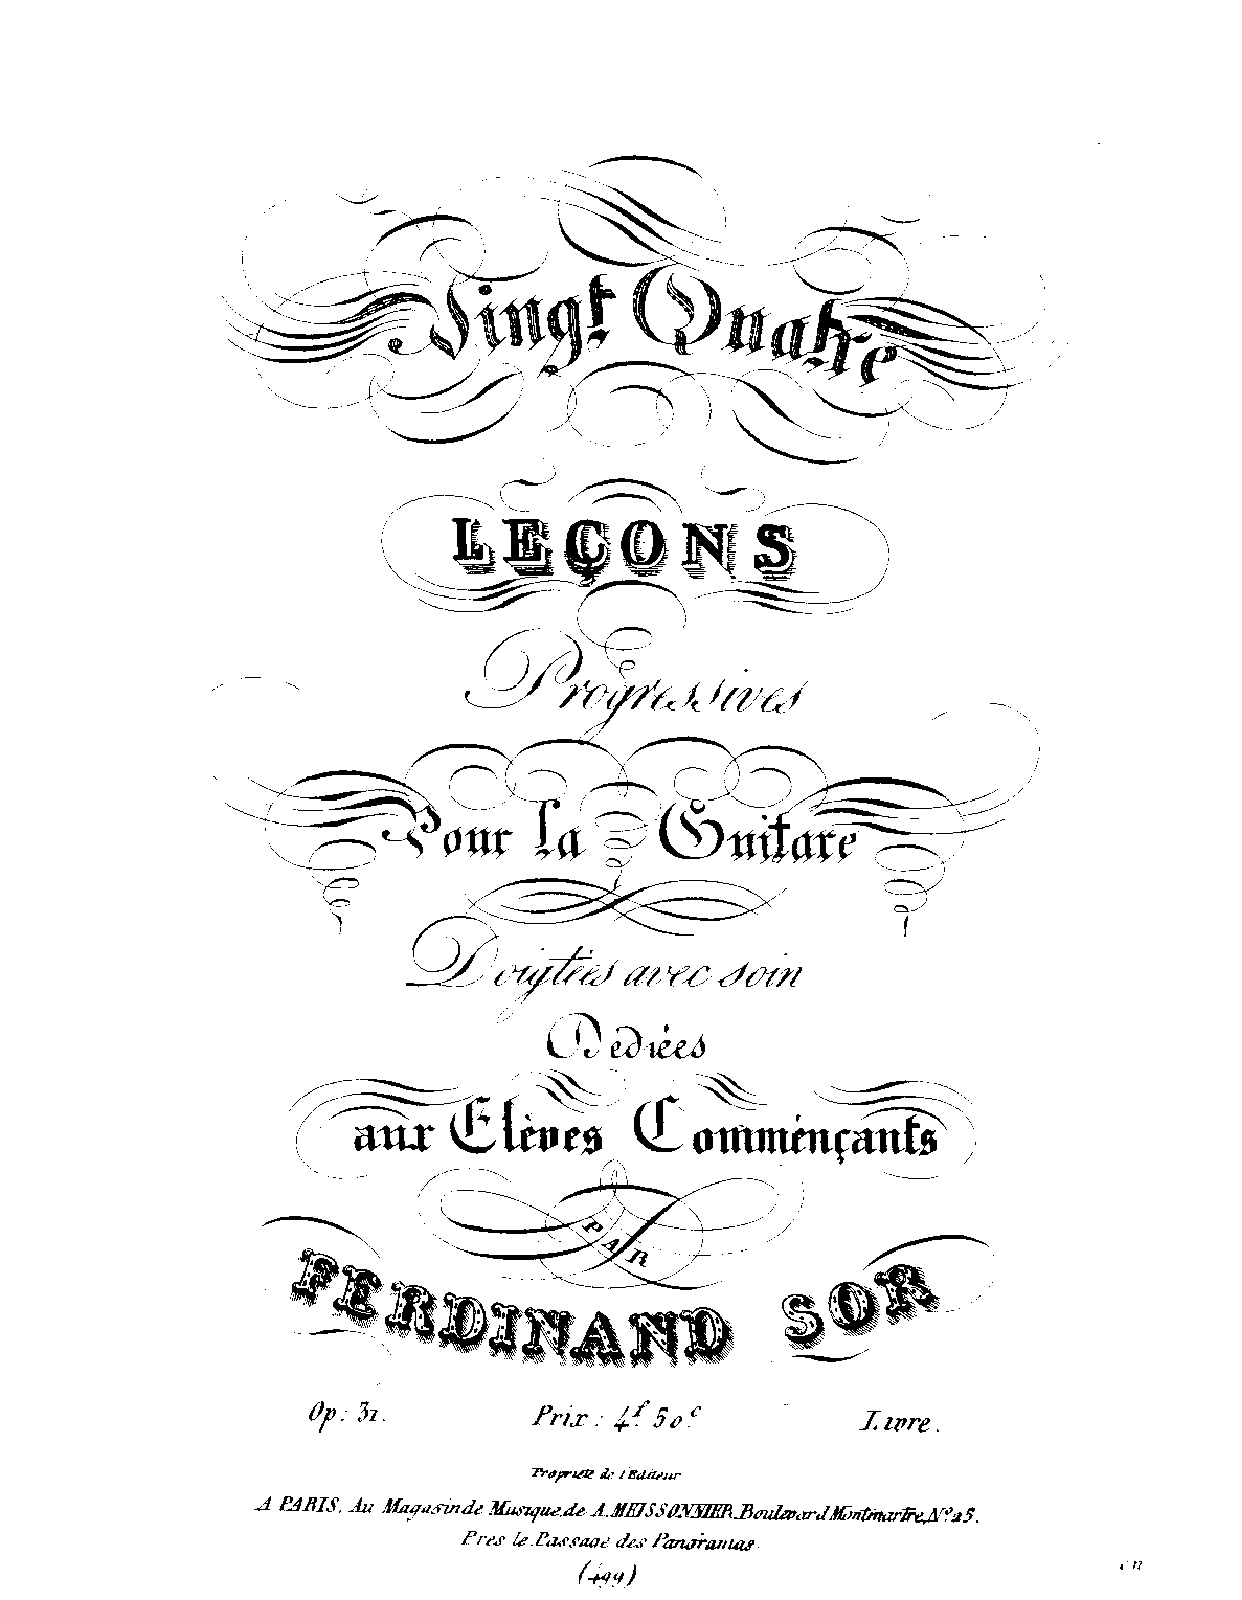 Vingt Quatre
LEÇONS
Progressives
Pour la Guitare
Doigtées avec soin
Dédiées
aux Elèves Commençants
PAR
FERDINAND SOR
Op: 31. Prix: 4f. 50c. Livre.
Propriété de l'Editeur
A PARIS, Au Magasin de Musique de A. MEISSONNIER, Boulevard Montmartre, No. 25.
Près le Passage des Panoramas.
(499)